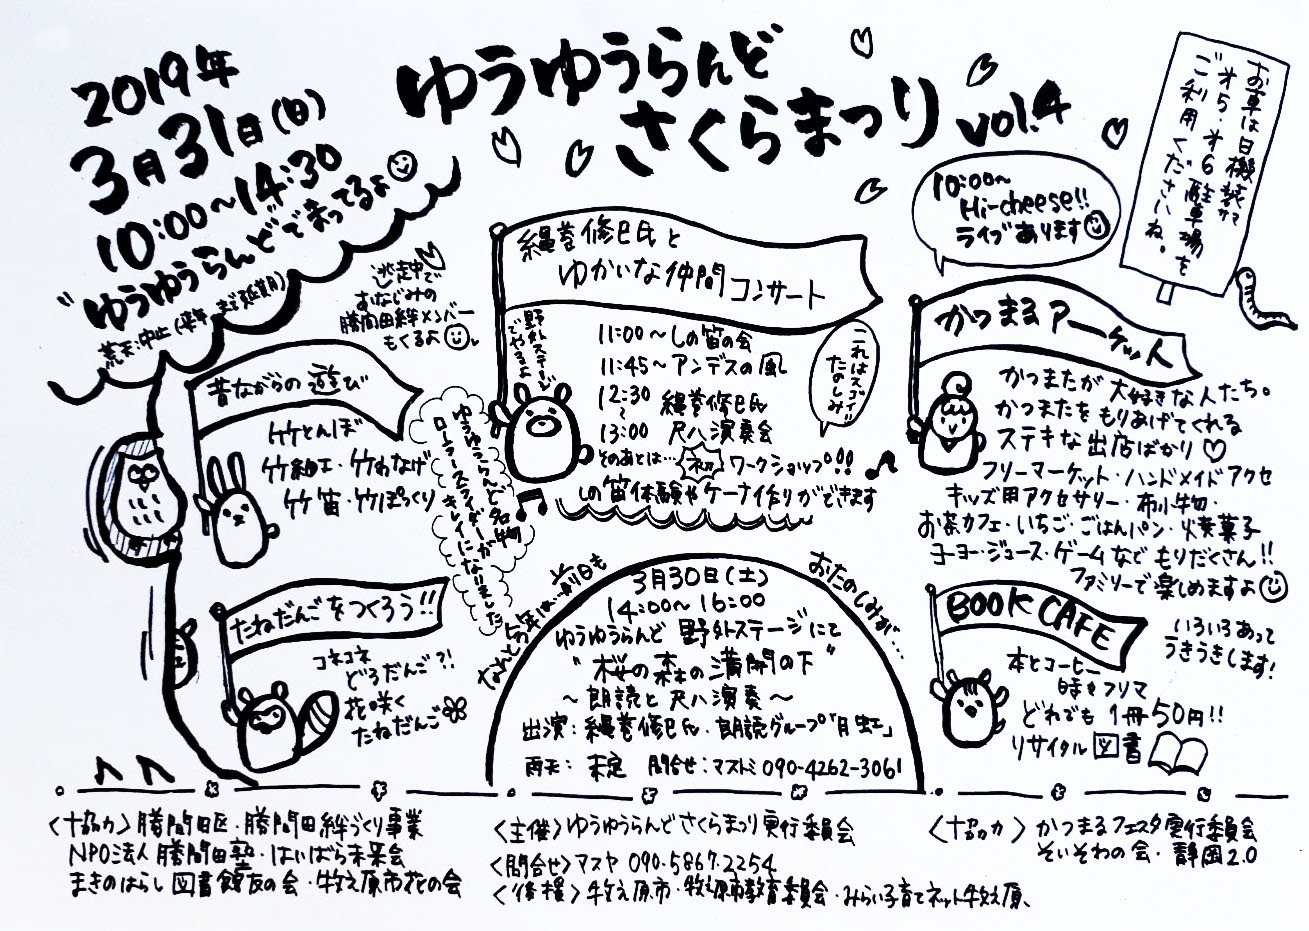 2019年
3月31日(日)
10:00〜14:30
"ゆうゆうらんど"でまってるよ
荒天:中止
ゆうゆうらんど
さくらまつり vol.4
お車は日機装㈱
オ5・オ6駐車場を
ご利用くださいね。
10:00〜
Hi-cheese!!
ライブあります
逃走中で
おなじみの
勝間田絆メンバー
もくるよ
昔ながらの遊び
竹とんぼ
竹細工・竹わなげ
竹笛・竹ぽっくり
たねだんごをつくろう!!
コネコネ
どろだんご?!
花咲く
たねだんご
ゆうゆうらんど名物
ローラースライダーが
キレイになりました
縄巻修巳氏と
ゆかいな仲間コンサート
野外ステージ
でやるよ
11:00〜しの笛の会
11:45〜アンデスの風
12:30
〜 縄巻修巳氏
13:00 尺八演奏会
そのあとは…初ワークショップ!!
しの笛体験やケーナ作りができます
これはスゴイ!!
たのしみ
なんと今年は…前日も
おたのしみが…
3月30日(土)
14:00〜16:00
ゆうゆうらんど 野外ステージにて
"桜の森の満開の下"
〜朗読と尺八演奏〜
出演:縄巻修巳氏・朗読グループ「月虹」
雨天:未定 問合せ:マストミ 090-4262-3061
かつまるアーケット
かつまたが大好きな人たち。
かつまたをもりあげてくれる
ステキな出店ばかり♡
フリーマーケット・ハンドメイドアクセ
キッズ用アクセサリー・布小物・
お茶カフェ・いちご・ごはんパン・火・菓子
ヨーヨー・ジュース・ゲームなどもりだくさん!!
ファミリーで楽しめますよ
BOOK CAFE
いろいろあって
うきうきします!
本とコーヒー
時々フリマ
どれでも1冊50円!!
リサイクル図書
<協力>勝間田区・勝間田絆づくり事業
NPO法人勝間田塾・はいばら未来会
まきのはらし図書館友の会・牧之原市花の会
<主催>ゆうゆうらんどさくらまつり実行委員会
<問合せ>マスヤ 090.5867.2254
<後援>牧之原市・牧之原市教育委員会・みらい子育てネット牧之原、
<協力> かつまるフェスタ実行委員会
そいそわの会・静岡2.0